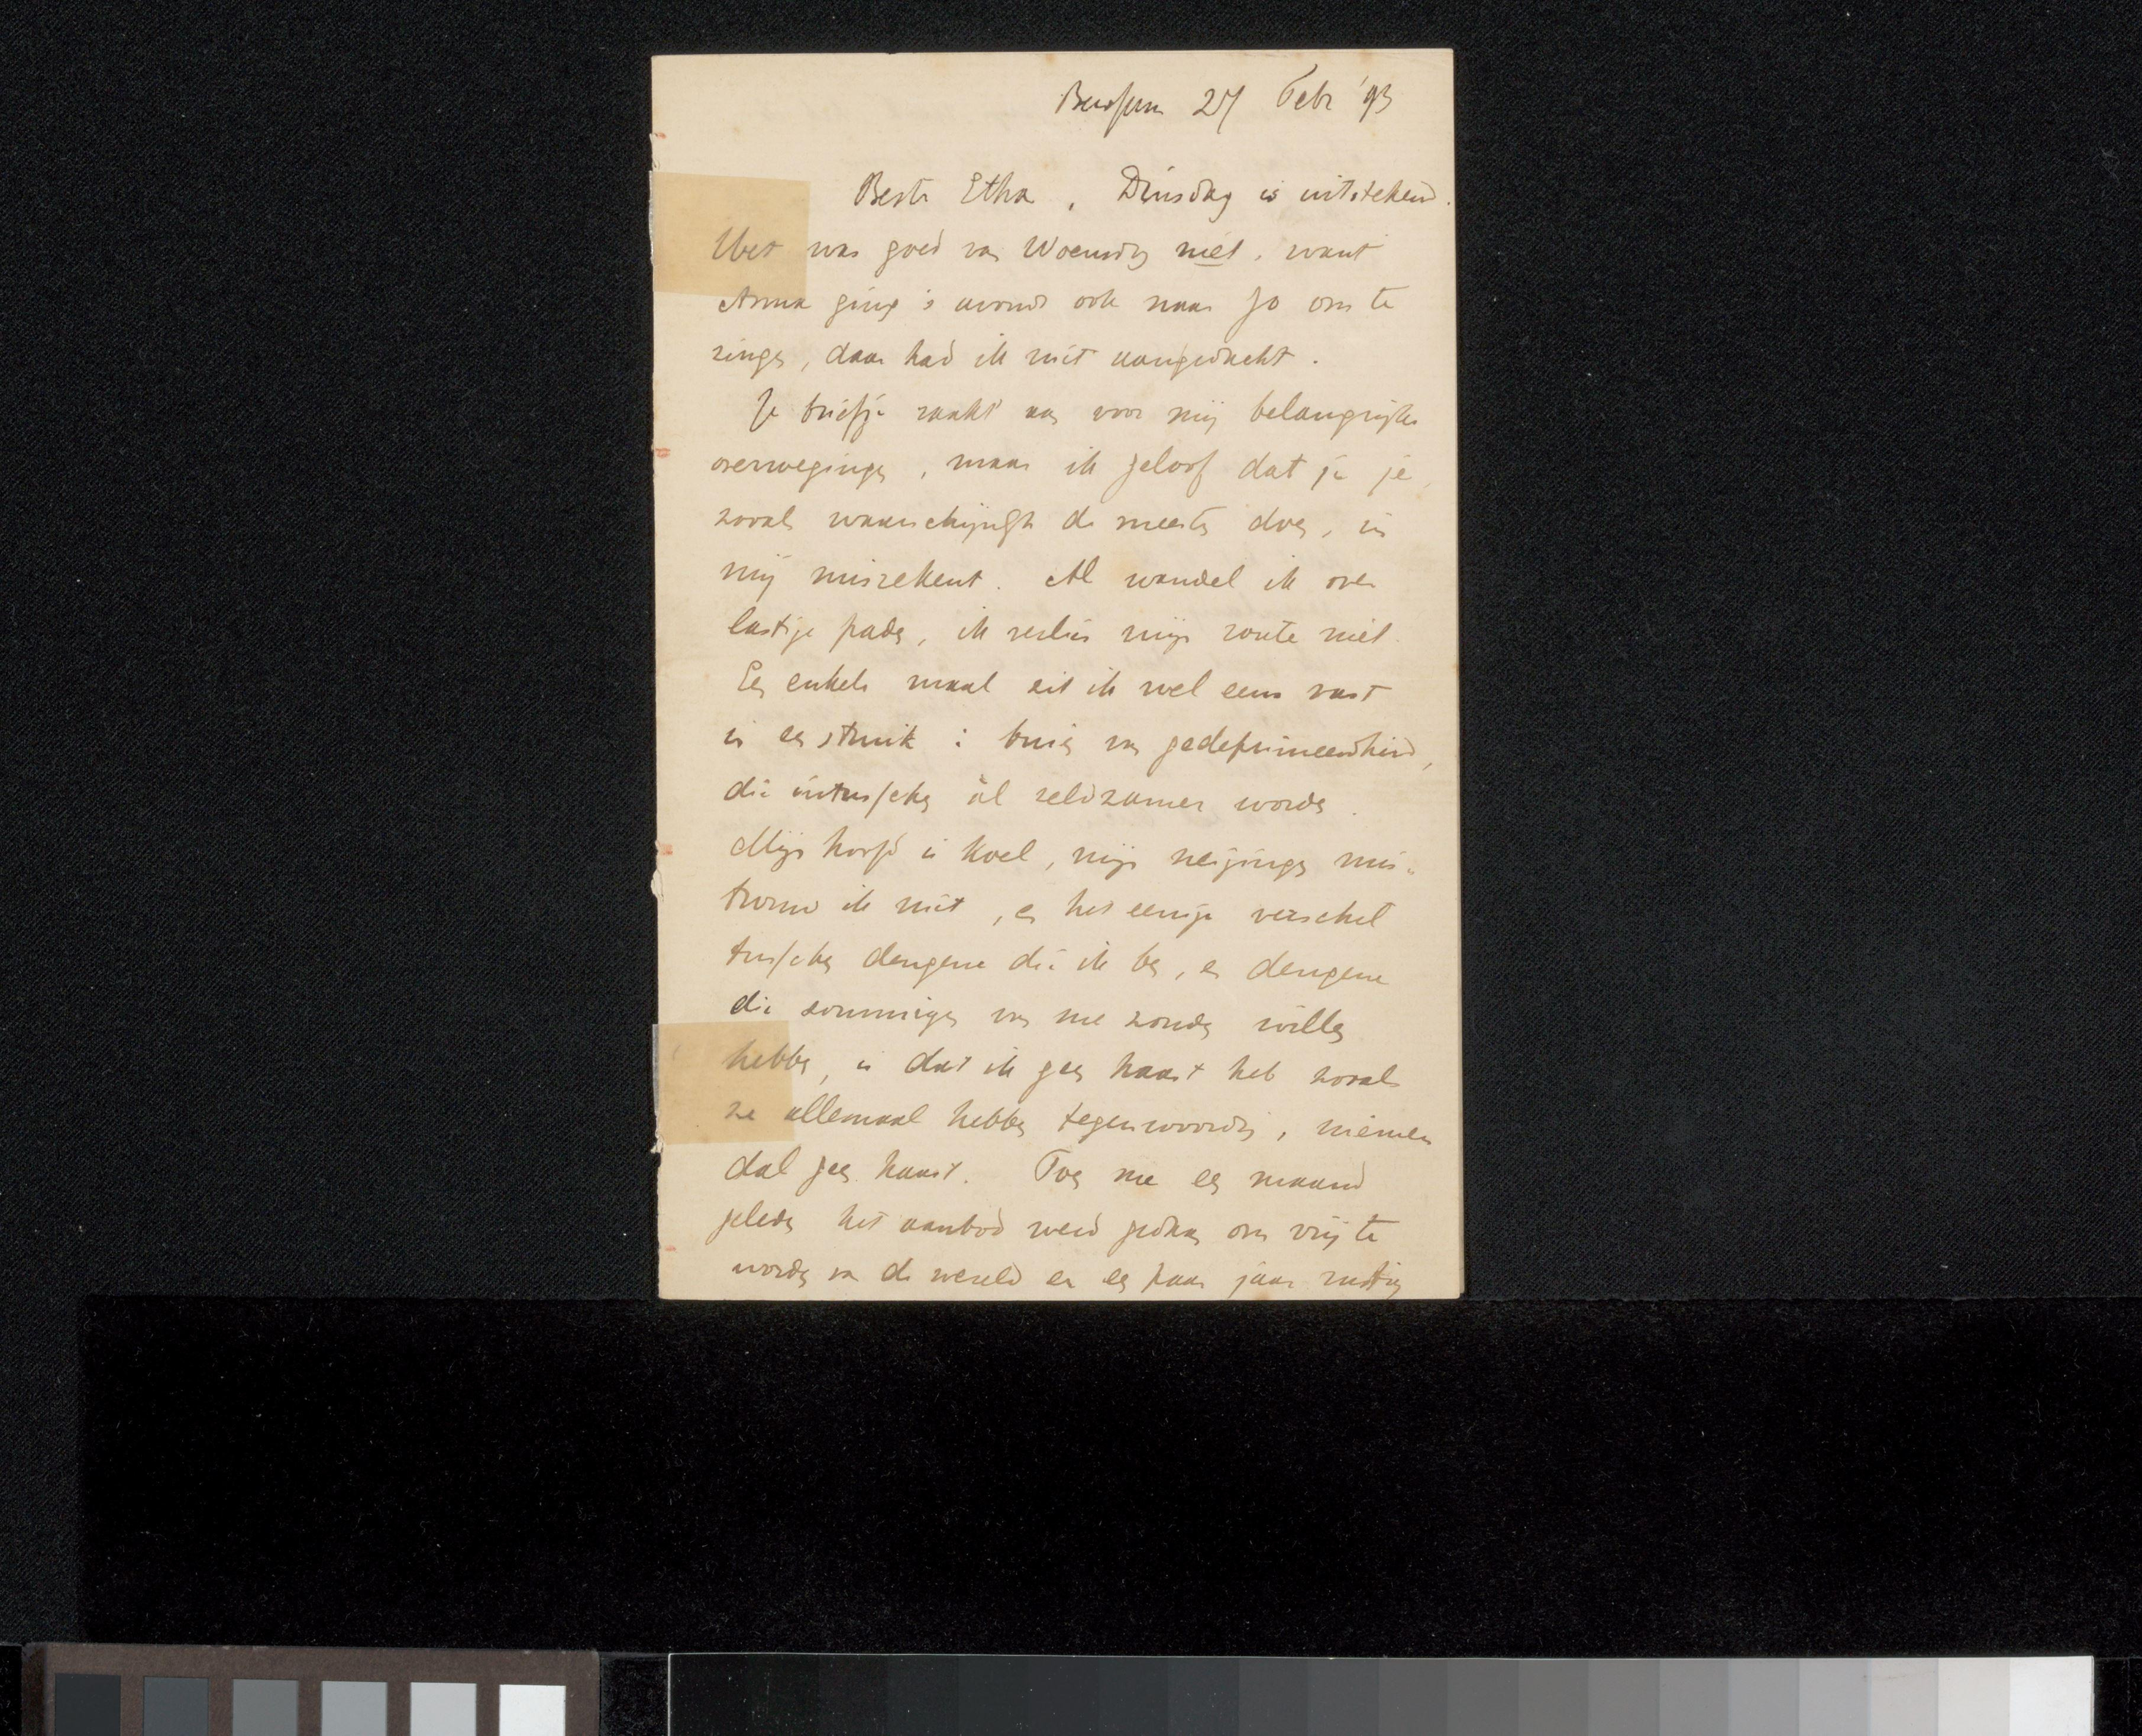 Bussum 27 Febr '93
Beste Etha, Dinsdag is uitstekend.
Het was goed van Woensdag niet, want
Anna ging 's avonds ook naar Jo om te
zingen, daar had ik niet aangedacht.
Je briefje raakt aan voor mij belangrijke
overwegingen, maar ik geloof dat je je,
zooals waarschijnlijk de meesten doen, in
mij misrekent. Al wandel ik over
lastige paden, ik verlies mijn route niet.
Een enkele maal zit ik wel eens vast
in een struik: buien van gedeprimeerdheid,
die intusschen ál zeldzamer worden.
Mijn hoofd is koel, mijn neigingen mis-
trouw ik niet, en het eenige verschil
tusschen dengene die ik ben, en dengene
die sommigen van me zouden willen
hebben, is dat ik geen haast heb zooals
ze allemaal hebben tegenwoordig, niemen
dal geen haast. Toen me een maand
geleden het aanbod werd gedaan om vrij te
worden van de wereld en een paar jaar rustig